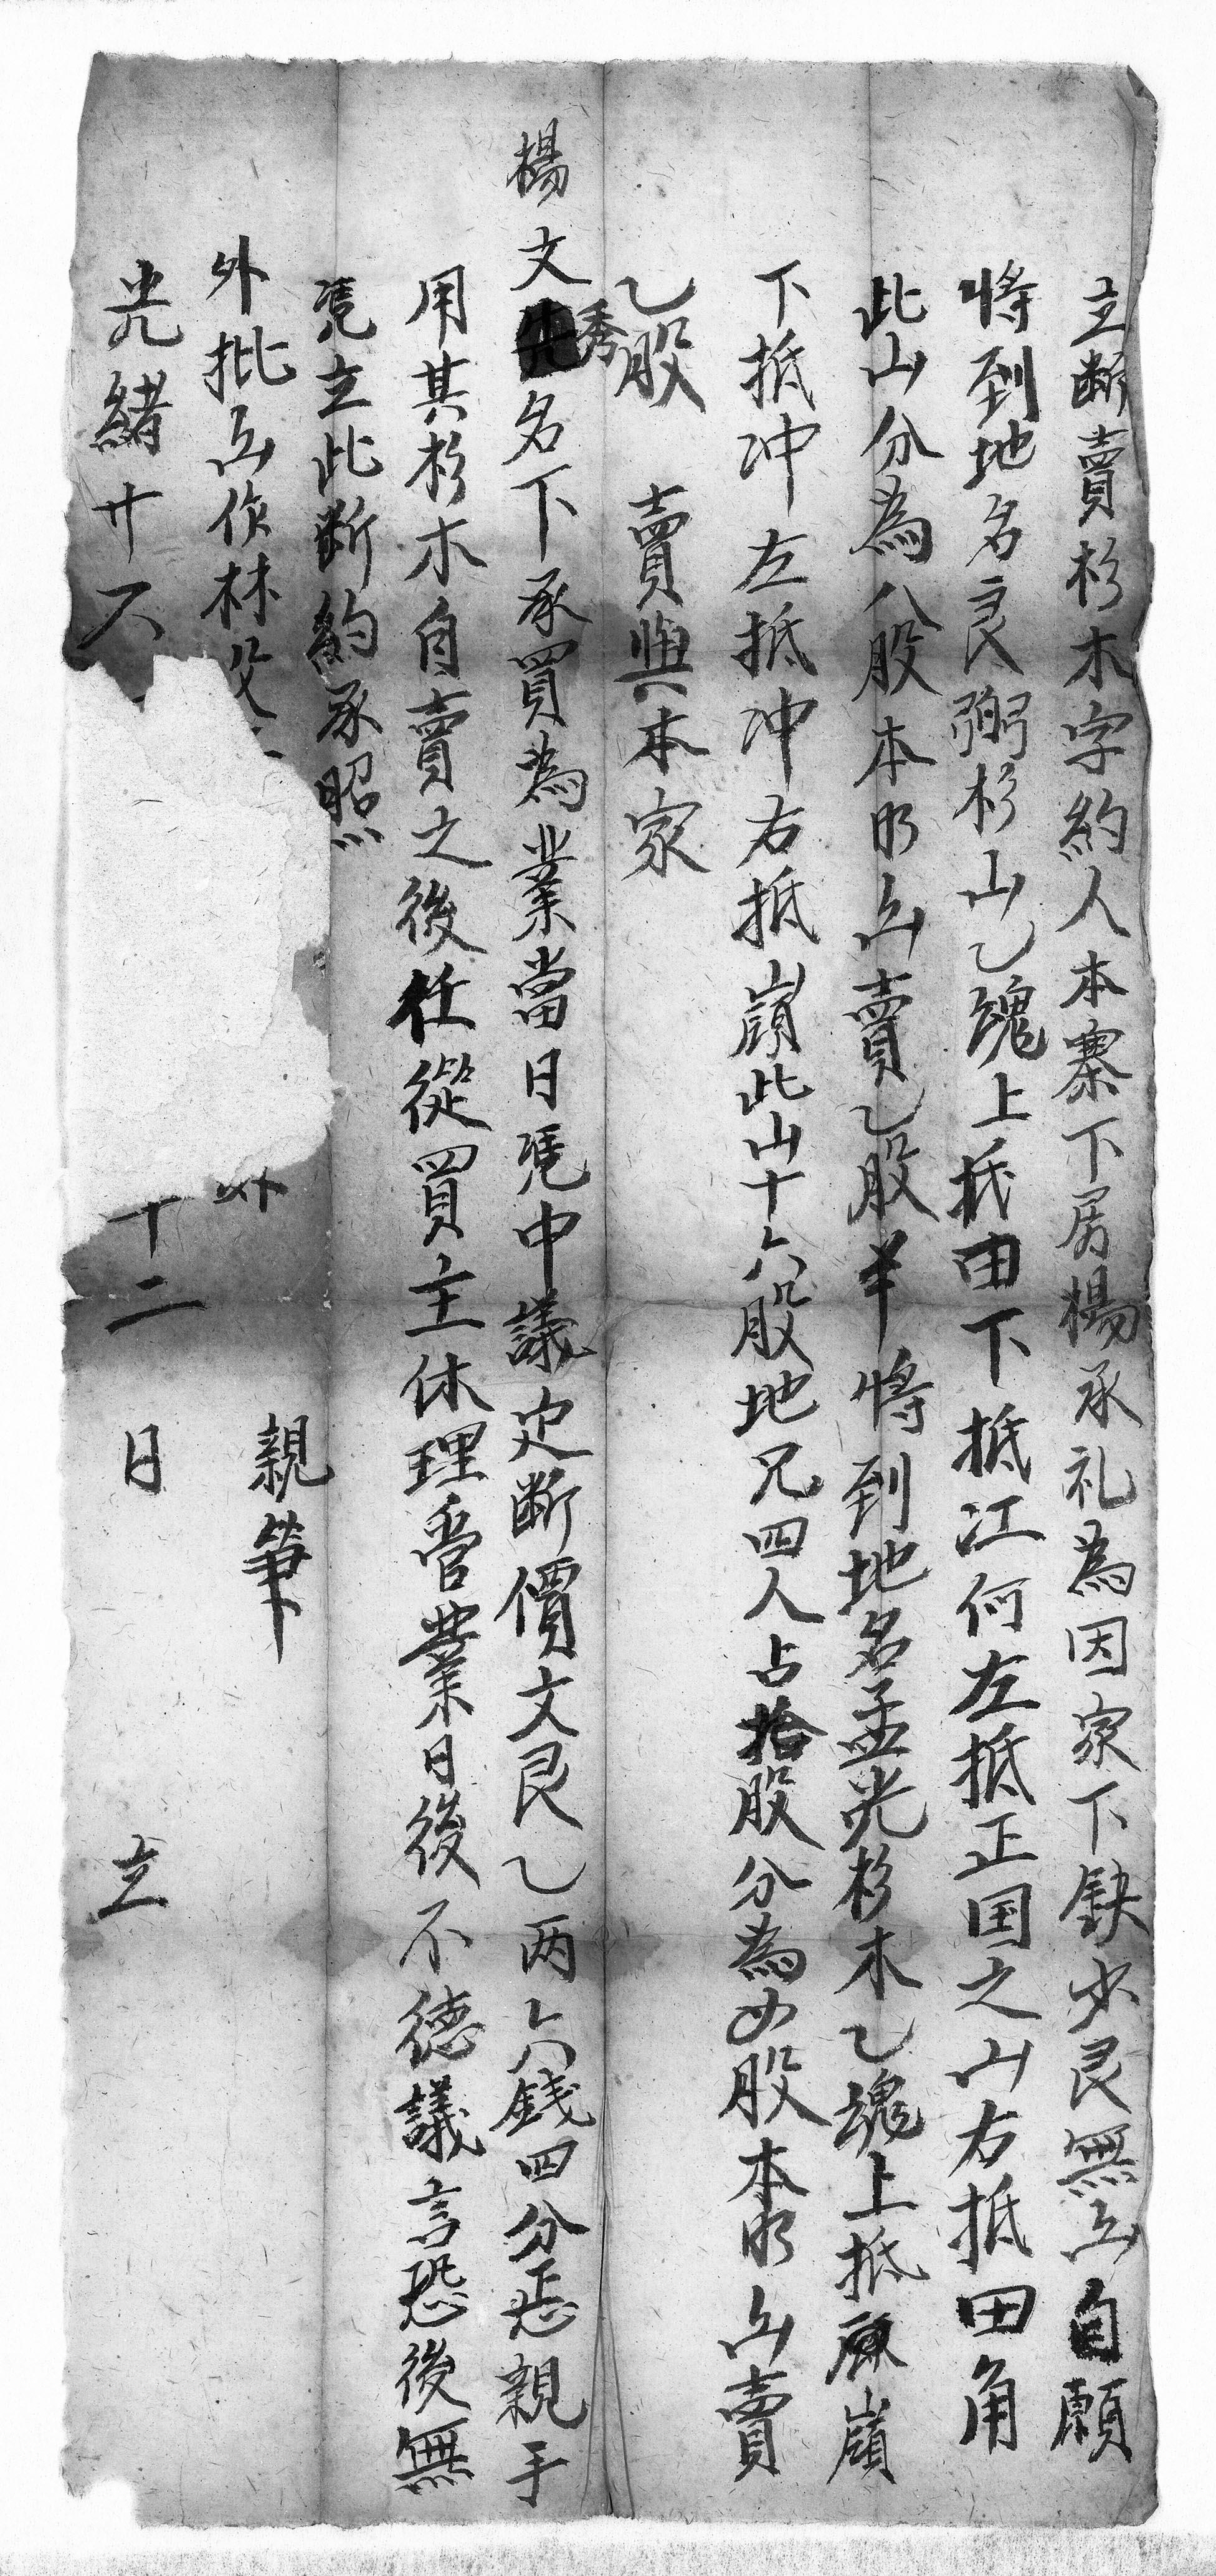 立斷賣杉木字約人本寨下房楊承礼為因家下缺少艮無出自願
將到地名良粥杉山乙塊上抵田下抵江何左抵正国之山右抵田角
此山分為八股本名出賣乙股半將到地名孟光杉木乙塊上抵嶺
下抵冲左抵冲右抵嶺此山十六股地兄四人占拾股分為四股本名出賣
乙股賣與本家
楊文秀名下承買為業當日凴中議定斷價文艮乙两六錢四分悉親手
用其杉木自賣之後任從買主休理管業日後不德議言恐後無
凴立此断約承照
外批出作林
親筆
光緒廿六
十二日立